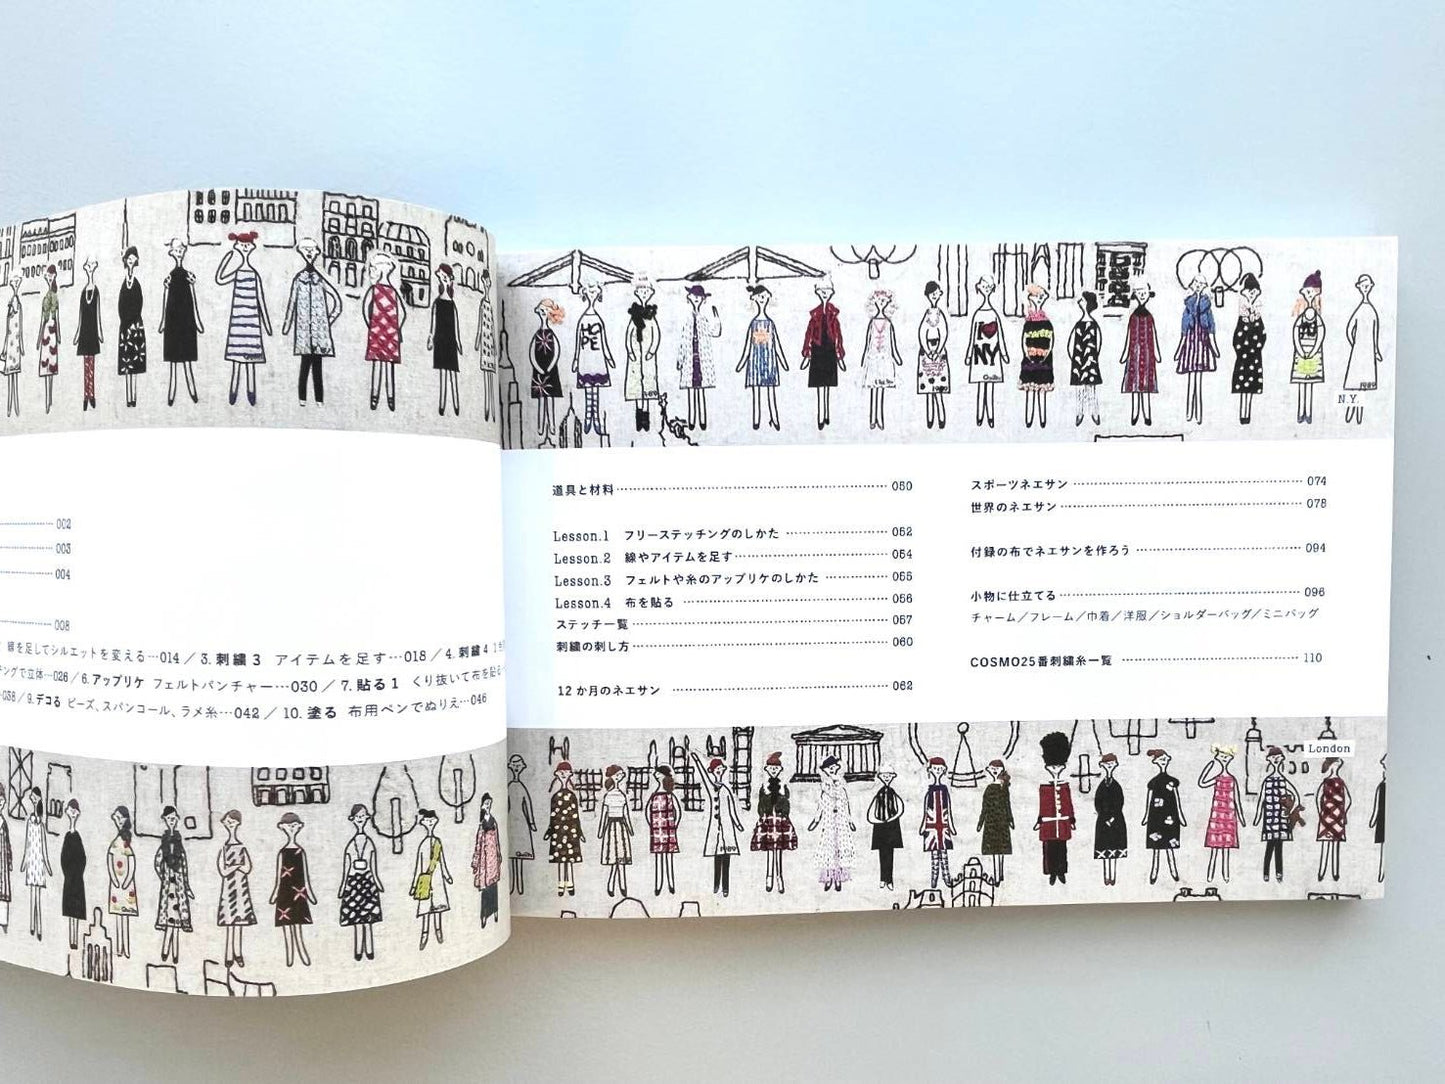 HOPE
I NY
N.Y.
002
003
004
008
線を足してシルエットを変える…014／3. 刺繍3 アイテムを足す…018／4. 刺繍4
チングで立体…026／6. アップリケ フェルトパンチャー…030／7. 貼る1 くり抜いて布を貼る
036／9. デコる ビーズ、スパンコール、ラメ糸…042／10. 塗る 布用ペンでぬりえ…046
道具と材料 050
Lesson.1 フリーステッチングのしかた 052
Lesson.2 線やアイテムを足す 054
Lesson.3 フェルトや糸のアップリケのしかた 055
Lesson.4 布を貼る 056
ステッチ一覧 057
刺繍の刺し方 060
12か月のネエサン 062
スポーツネエサン 074
世界のネエサン 078
付録の布でネエサンを作ろう 094
小物に仕立てる 096
チャーム／フレーム／巾着／洋服／ショルダーバッグ／ミニバッグ
COSMO25番刺繍糸一覧 110
London
1989